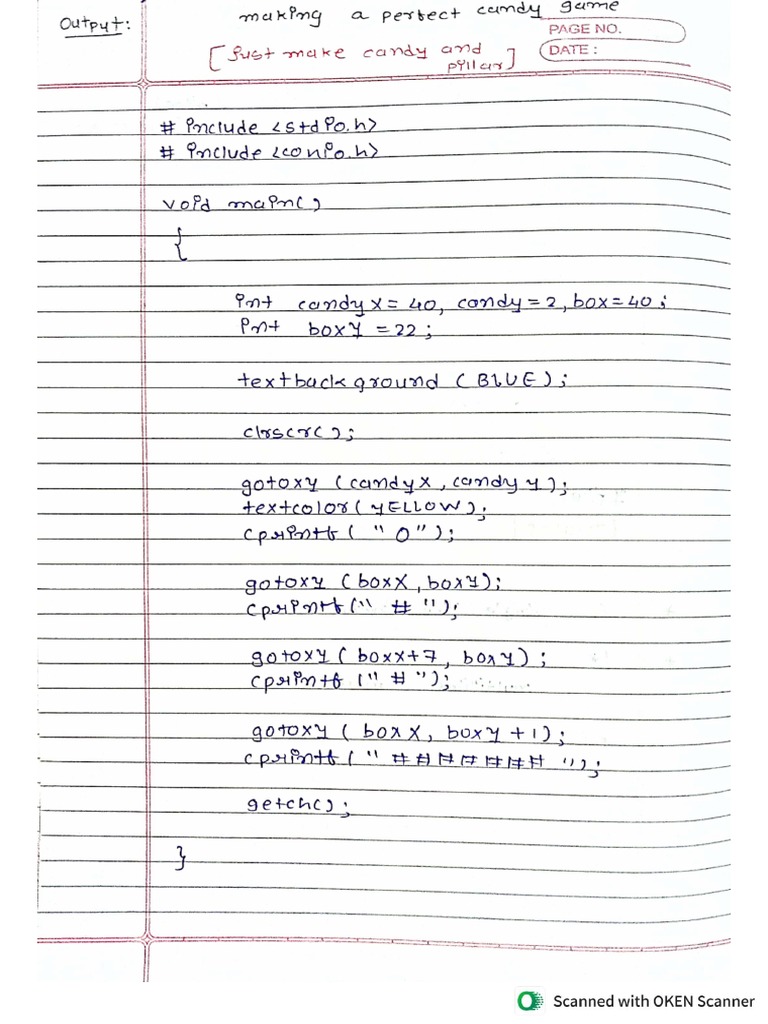 Output:
making a perfect candy game
PAGE NO.
[Just make candy and pillar]
DATE :
# include <stdio.h>
# include <conio.h>
void main()
{
int candyx = 40, candy = 2, box = 40;
int boxy = 22;
textbackground (BLUE);
clrscr();
gotoxy (candyx, candyy);
textcolor (YELLOW);
cprintf ( " O " );
gotoxy (boxx, boxy);
cprintf (" # ");
gotoxy (boxx+7, boxy);
cprintf (" # ");
gotoxy ( boxx, boxy +1);
cprintf ( " ######## ");
getch();
}
Scanned with OKEN Scanner